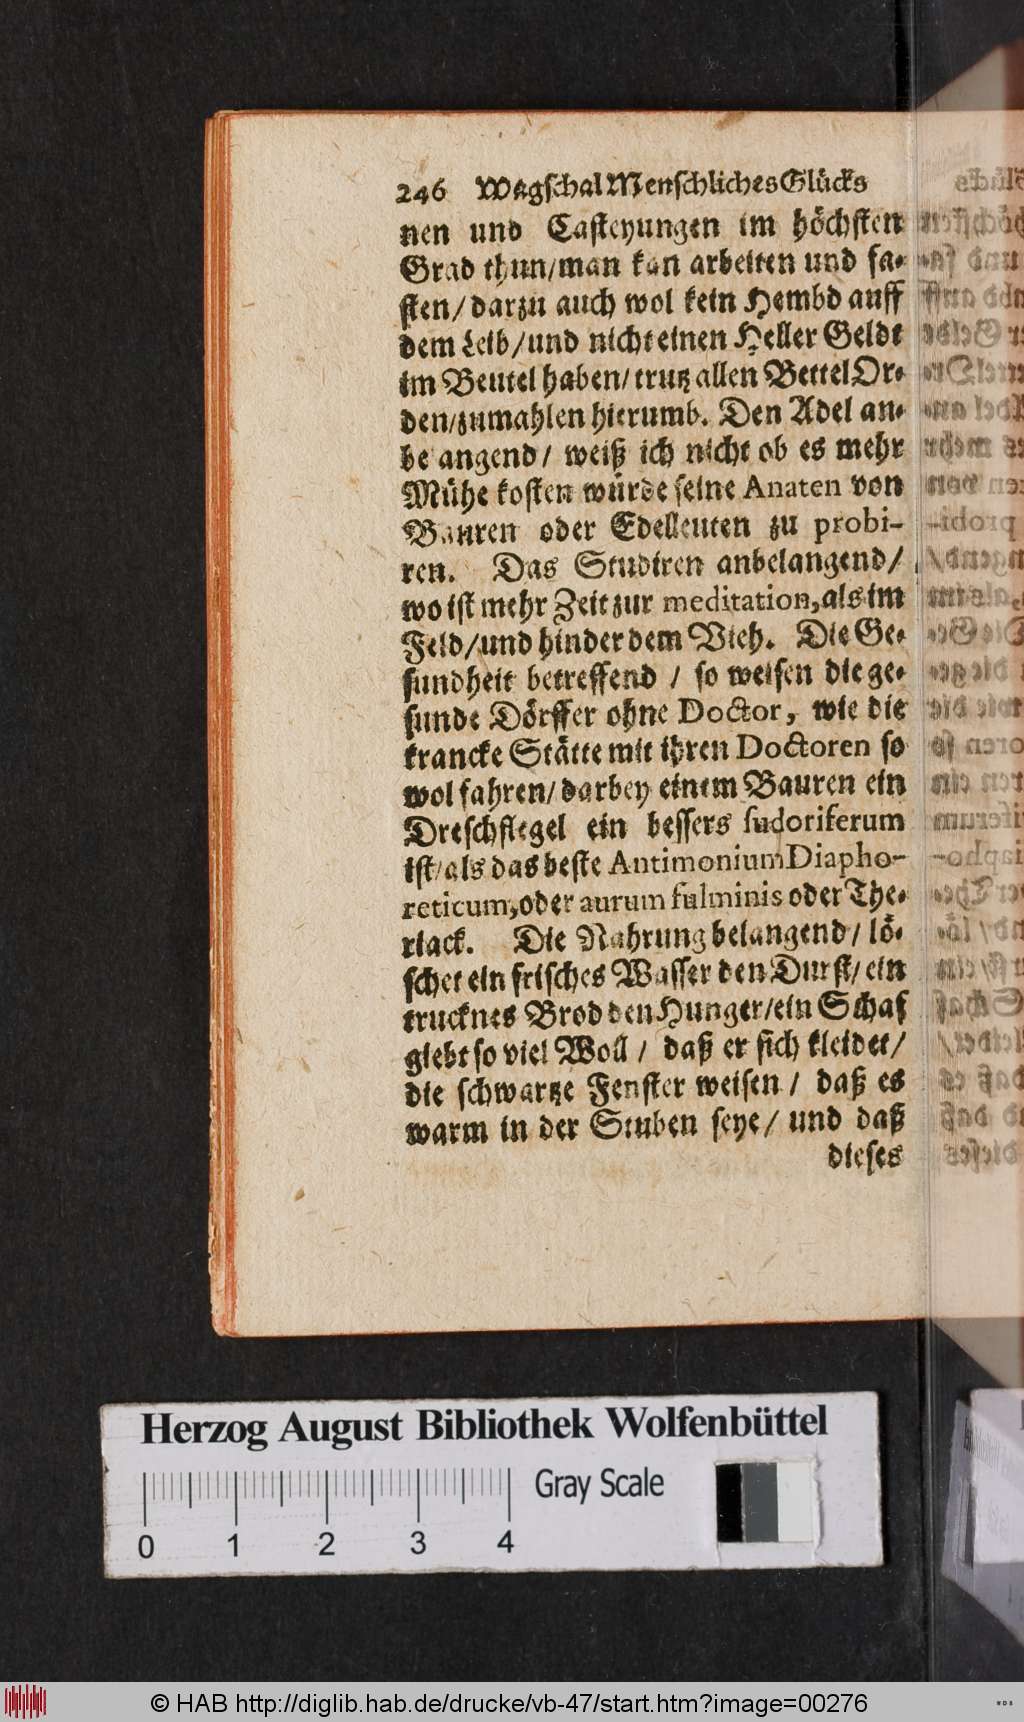 246 Wagschal Menschliches Glücks
nen und Casteyungen im höchsten
Grad thun/man kan arbeiten und fa-
sten/darzu auch wol kein Hembd auff
dem Leib/und nicht einen Heller Geldt
im Beutel haben/trutz allen Bettel Or-
den/zumahlen hierumb. Den Adel an-
be angend/ weiß ich nicht ob es mehr
Mühe kosten würde seine Anaten von
Bauren oder Edelleuten zu probi-
ren. Das Studiren anbelangend/
wo ist mehr Zeit zur meditation, als im
Feld/und hinder dem Vieh. Die Ge-
sundheit betreffend / so weisen die ge-
sunde Dörffer ohne Doctor, wie die
krancke Stätte mit ihren Doctoren so
wol fahren/darbey einem Bauren ein
Dreschflegel ein bessers sudoriferum
ist/als das beste Antimonium Diapho-
reticum, oder aurum fulminis oder The-
riack. Die Nahrung belangend/ lö-
schet ein frisches Wasser den Durst/ein
trucknes Brod den Hunger/ein Schaf
giebt so viel Woll / daß er sich kleidet/
die schwartze Fenster weisen / daß es
warm in der Stuben seye/ und daß
dieses
Herzog August Bibliothek Wolfenbüttel
Gray Scale
0 1 2 3 4
© HAB http://diglib.hab.de/drucke/vb-47/start.htm?image=00276